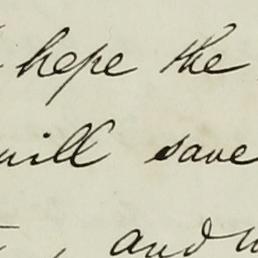 hope the
will save
and